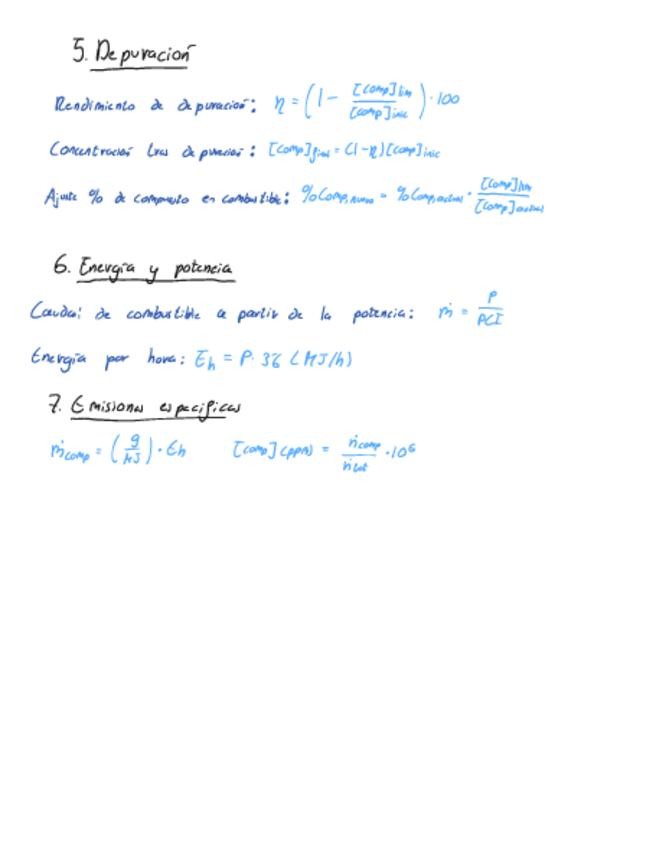 5. Depuración
Rendimiento de depuración: η = (1 - [comp]lim / [comp]inic) · 100
Concentración tras depuración: [comp]final = (1 - η)[comp]inic
Ajuste % de compuesto en combustible: %comp,nuevo = %comp,actual · [comp]lim / [comp]actual
6. Energía y potencia
Caudal de combustible a partir de la potencia: ṁ = P / PCI
Energía por hora: Eh = P · 36 (MJ/h)
7. Emisiones especificas
ṁcomp = (g / MJ) · Eh [comp](ppm) = ṅcomp / ṅtot · 10⁶